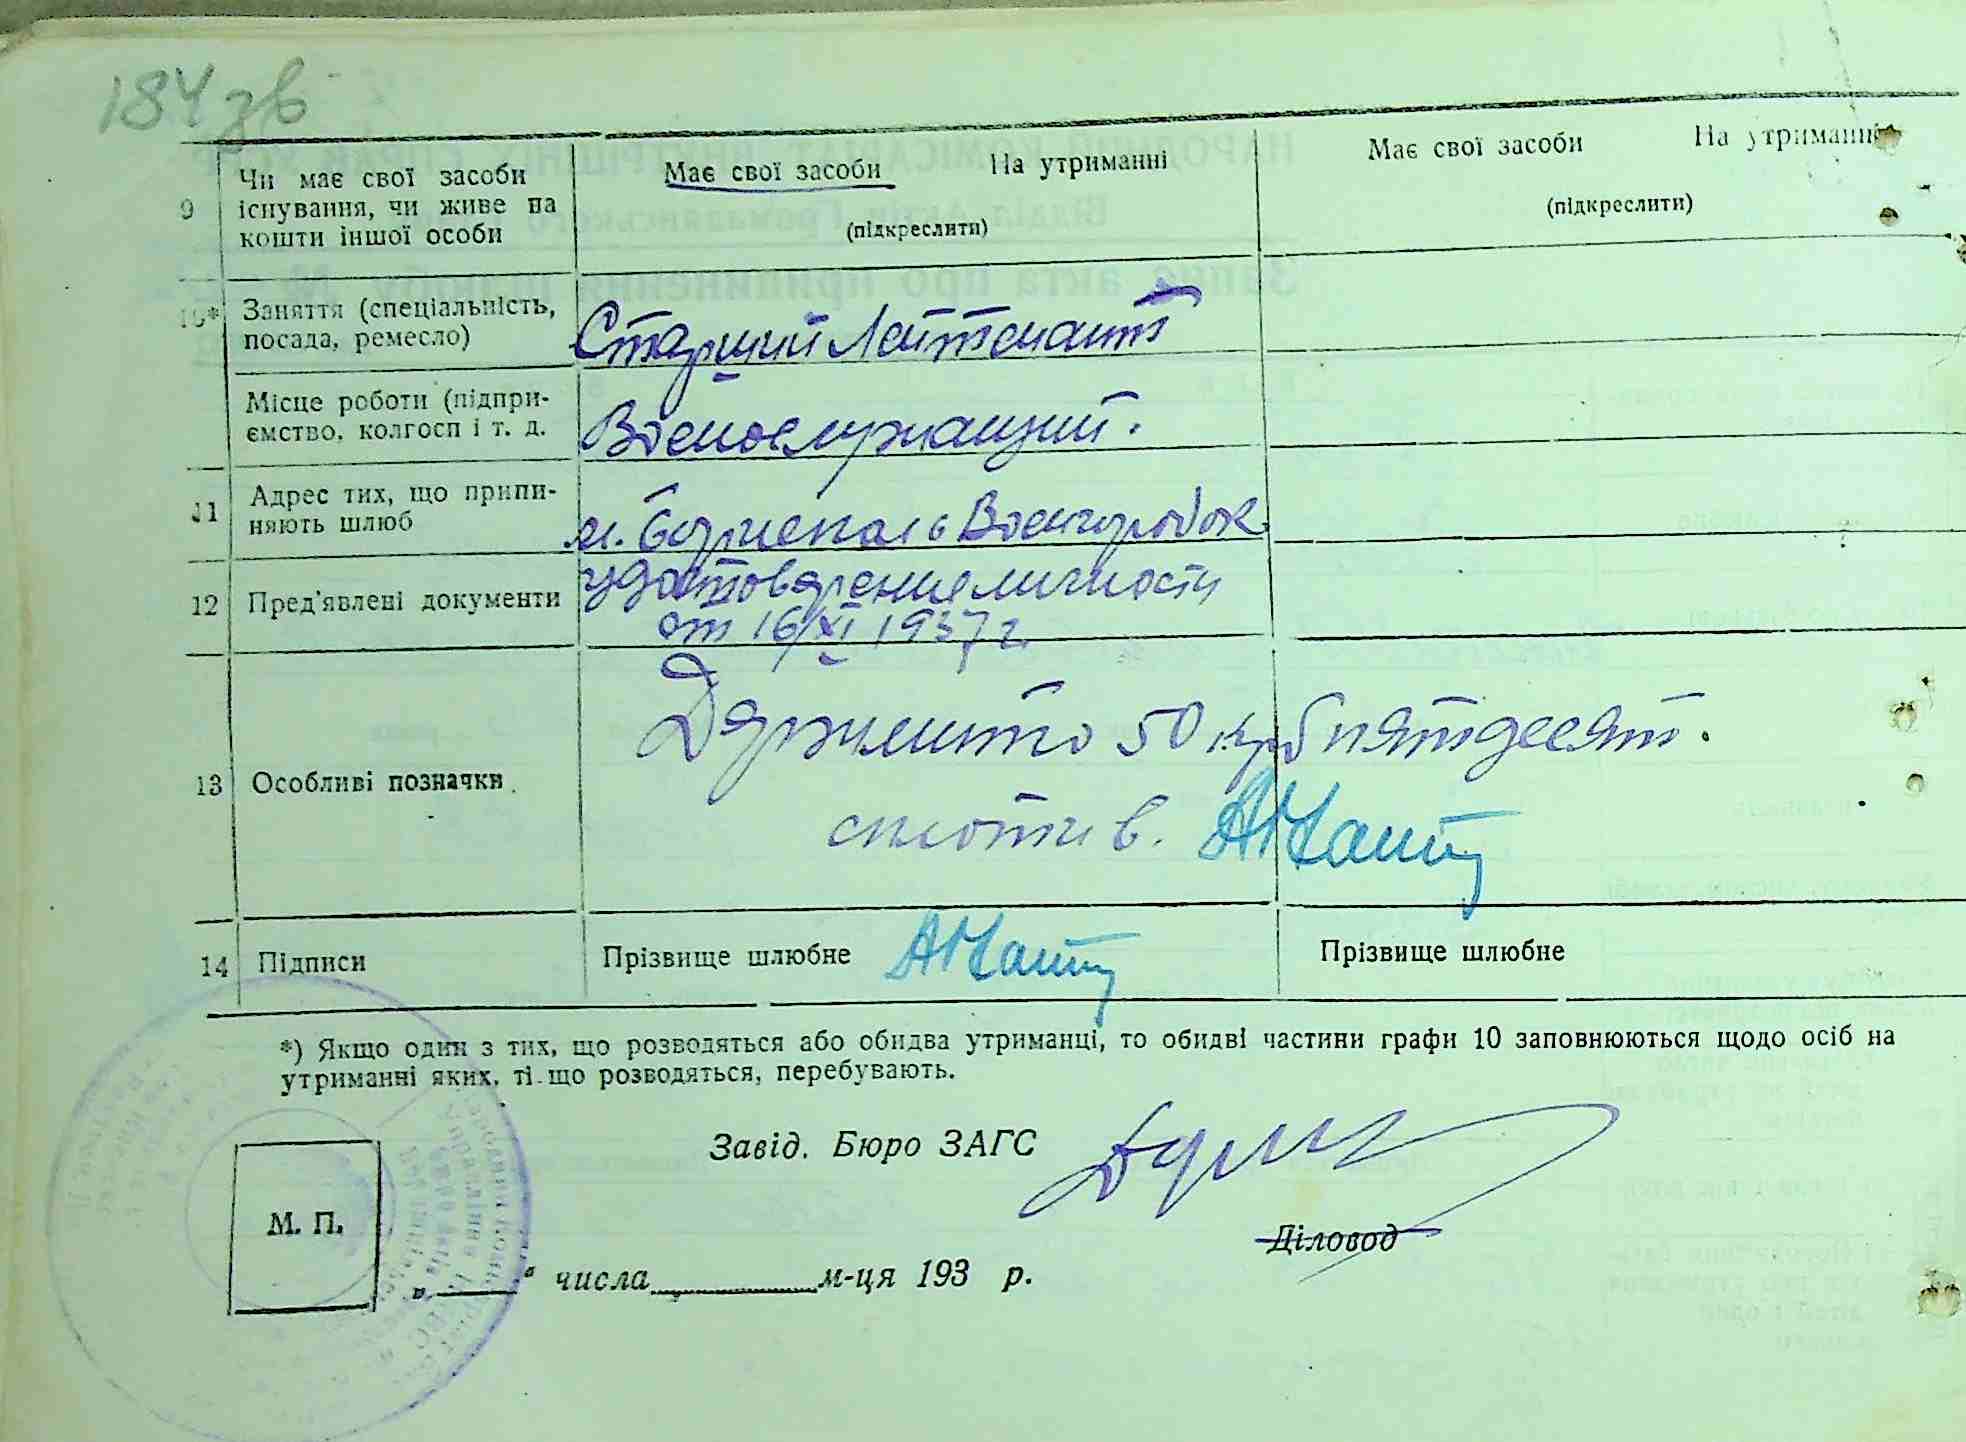 184 зв
Має свої засоби На утриманні Має свої засоби На утриманні
9 Чи має свої засоби існування, чи живе на кошти іншої особи
(підкреслити) (підкреслити)
10* Заняття (спеціальність, посада, ремесло) Старший Лейтенант
Місце роботи (підпри-
ємство, колгосп і т. д. Военослужащий.
11 Адрес тих, що припи-
няють шлюб м. Бориспаль Военгородок
12 Пред'явлені документи удостоверение личности
от 16/XI 1937 г.
13 Особливі позначки
Держмито 50 крб пятдесят.
сплотив.
14 Підписи Прізвище шлюбне Прізвище шлюбне
*) Якщо один з тих, що розводяться або обидва утриманці, то обидві частини графи 10 заповнюються щодо осіб на
утриманні яких, ті що розводяться, перебувають.
Завід. Бюро ЗАГС
Діловод
М. П.
„ “ числа м-ця 193 р.